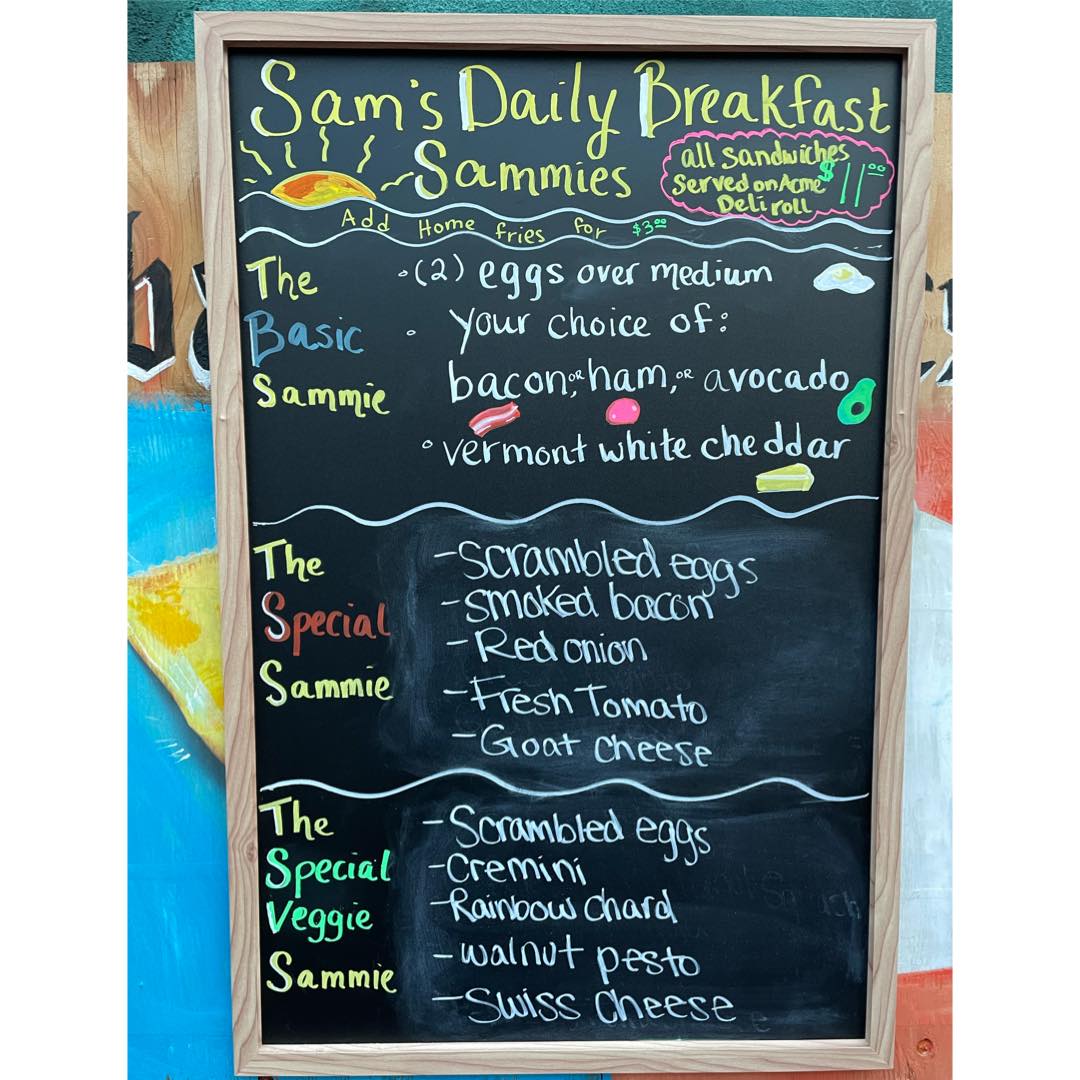 Sam's Daily Breakfast
Sammies
all sandwiches
Served on Acme
Deli roll
$11.00
Add Home fries for $3.00
The
Basic
Sammie
(2) eggs over medium
your choice of:
bacon, or ham, or avocado
vermont white cheddar
The
Special
Sammie
- Scrambled eggs
- smoked bacon
- Red onion
- Fresh Tomato
- Goat cheese
The
Special
Veggie
Sammie
- Scrambled eggs
- Cremini
- Rainbow chard
- walnut pesto
- Swiss cheese